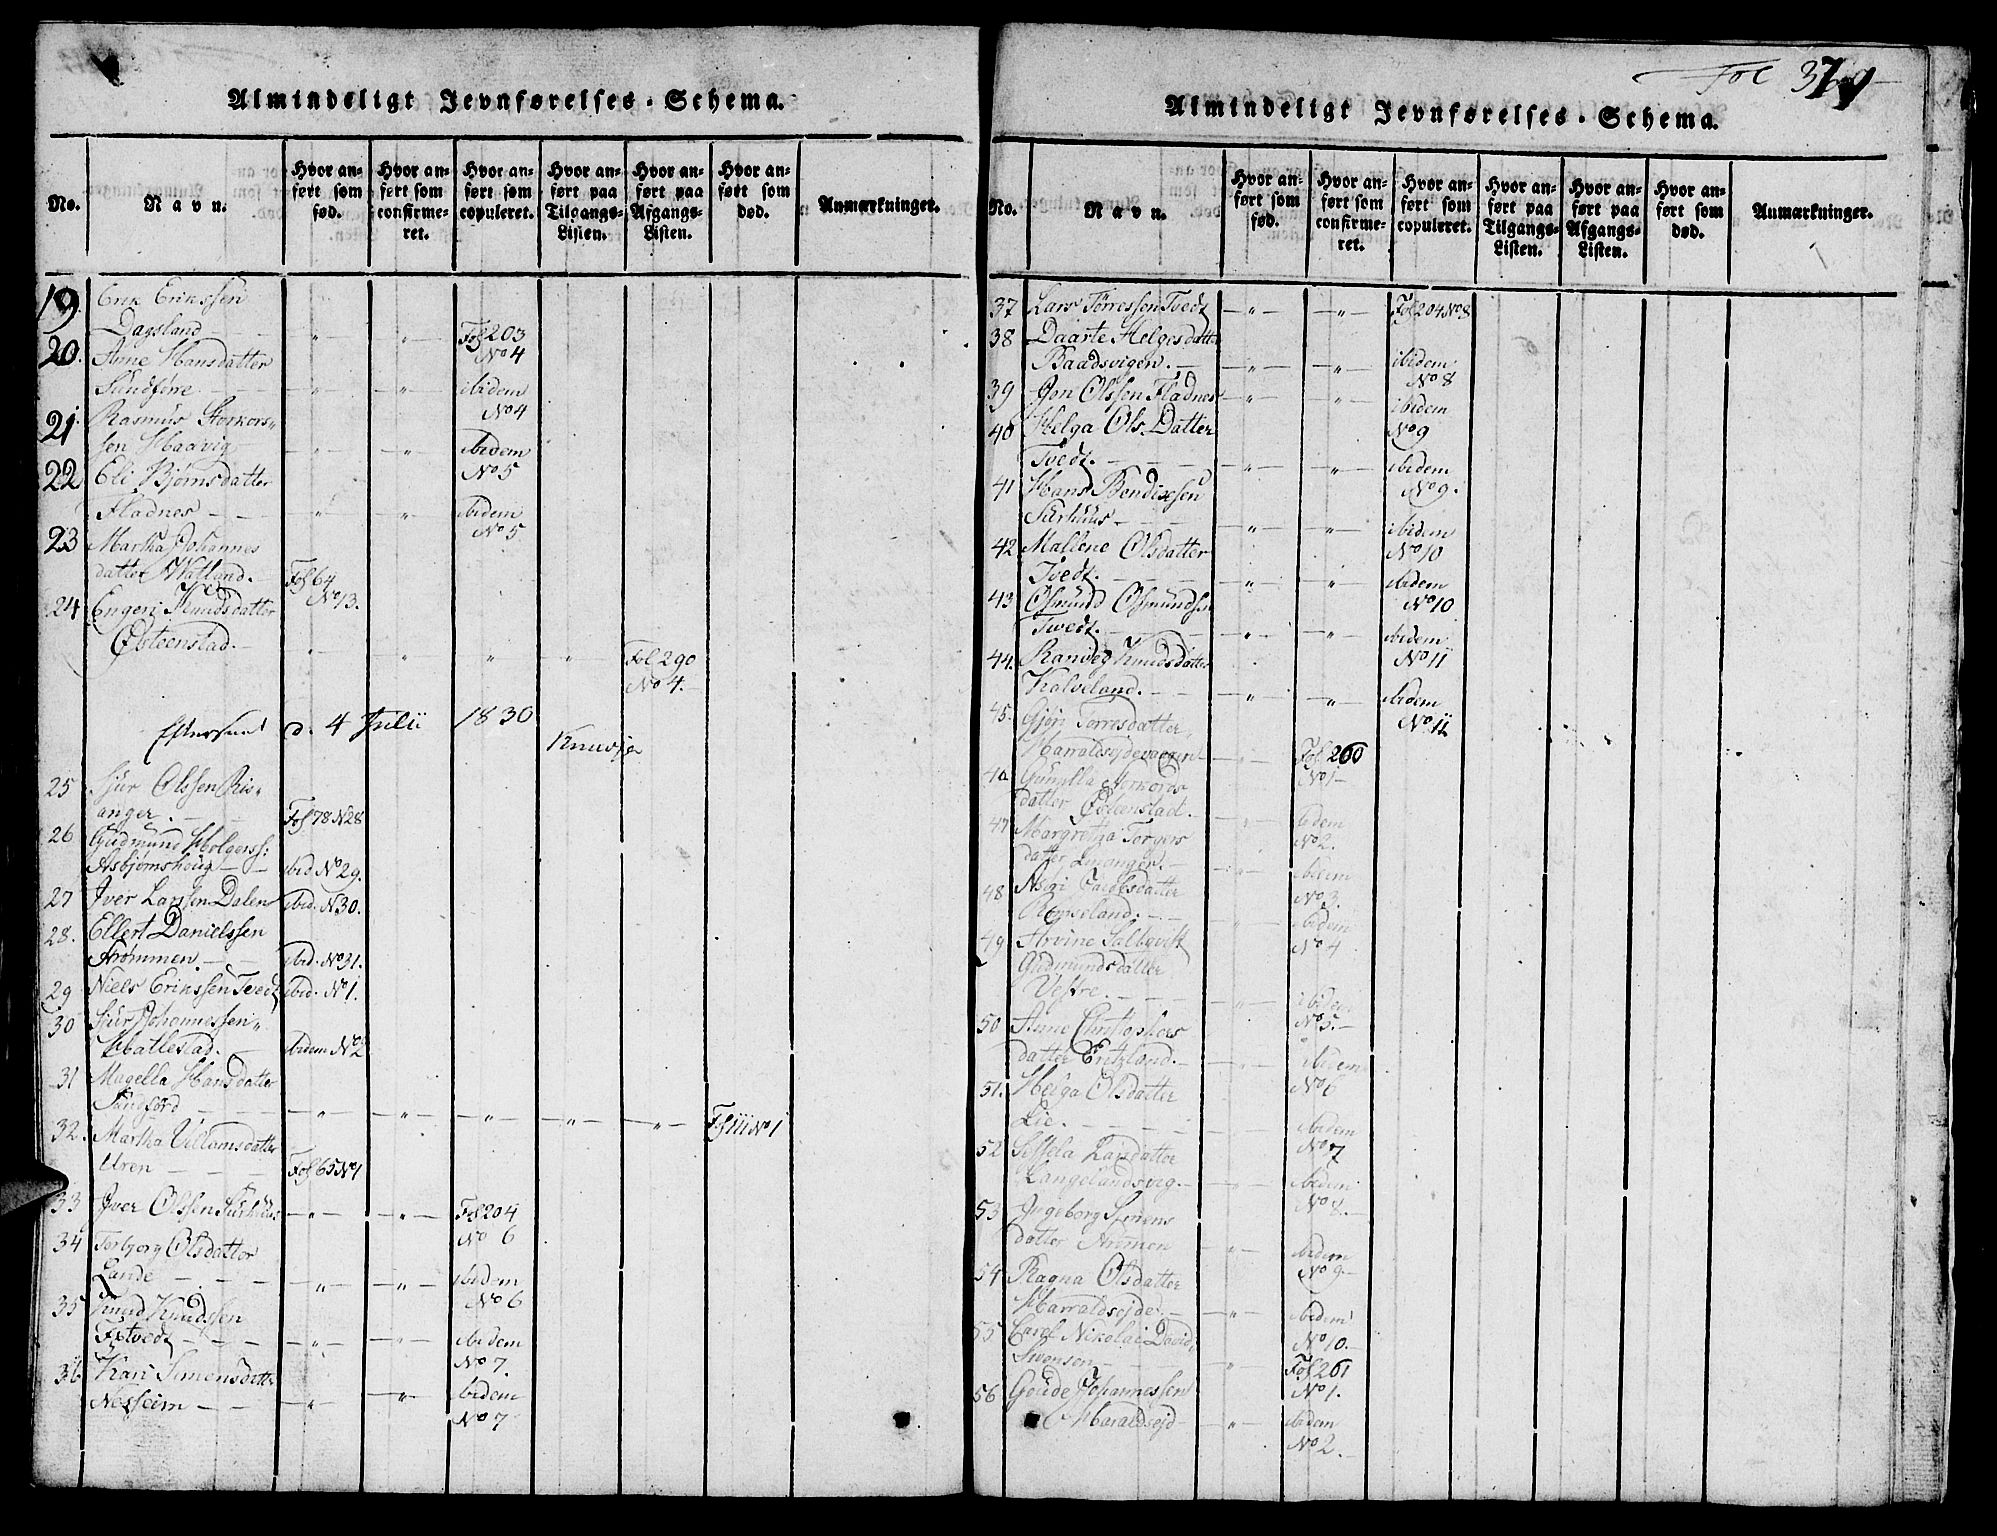 Almindeligt Jevnførelses-Schema.
No.
Navn.
Hvor anført som fød.
Hvor anført som confirmeret.
Hvor anført som copuleret.
Hvor anført paa Tilgangs-Listen.
Hvor anført paa Afgangs-Listen.
Hvor anført som død.
Anmærkninger.
19. Erik Erikssen
Dagsland — " " Fol 203 No 4
20. Anne Hansdatter
Sundføre — " " ibidem No 4
21. Rasmus Storkors„
sen Haavig " " ibidem No 5
22 Eli Bjørnsdatter
Fladnes — " " ibidem No 5
23 Martha Johannes
datter Watland. Fol 64 No 13.
24 Engeri Knudsdatter
Østeenstad. " " " " Fol 290 No 4.
Efterseet d. 4 Julii 1830
25 Sjur Olssen Ris„
anger. Fol 78 N 28
26 Gudmund Holgerss:
Asbjørnshoug — ibid No 29.
27 Iver Larssen Dalen ibid. N 30.
28. Ellert Danielssen
Strømmen. ibid. No 31.
29 Niels Erikssen Tvedt ibid. No 1.
30 Sjur Johannessen„
Hatlestad. ibidem No 2
31 Magella Hansdatter
Sandførd — " " " " " Fol 111 No 1
32. Martha Villamsdatter
Uren — Fol 65 No 1
33 Iver Olssen Surhuus " " Fol 204 No 6
34 Torbjorg Olsdatter
Lande — " " ibidem No 6
35 Knud Knudssen
Tvedt — " " ibidem No 7.
36 Kari Simensdatter
Nesseim — " " ibidem No 7
Fol 371
Almindeligt Jevnførelses-Schema.
No.
Navn.
Hvor anført som fød.
Hvor anført som confirmeret.
Hvor anført som copuleret.
Hvor anført paa Tilgangs-Listen.
Hvor anført paa Afgangs-Listen.
Hvor anført som død.
Anmærkninger.
37 Lars Tørressen Tvedt " " Fol 204 No 8
38 Daarte Helgesdatter
Baadsvigen. " " ibidem No 8
39 Jon Olssen Fladnes " " ibidem No 9
40 Helga Ols Datter
Tvedt. " " ibidem No 9.
41 Hans Bendixsen
Surhuus " " ibidem No 10
42 Mallene Olsdatter
Tvedt. " " ibidem No 10
43 Osmund Osmundsen
Twedt. " " ibidem No 11
44. Ranveg Knudsdatter
Kolveland. " " ibidem No 11
45. Gjøri Torresdatter
Harraldsejdevaagen " Fol 260 No 1
46 Gunilla Storkors
datter Østeenstad. " ibidem No 2.
47 Margretha Torgers
datter Imonger. " ibidem No 3.
48 Astri Jacobsdatter
Rømseland. " ibidem No 4
49 Arvine Salbqvist
Gudmundsdatter
Vestre. " ibidem No 5.
50 Anne Christophers
datter Eritzland. " ibidem No 6
51. Helga Olsdatter
Lie. ibidem No 7
52 Sissela Larsdatter
Langelandsvig. " ibidem No 8.
53 Ingeborg Simens
datter Strømen " ibidem No 9.
54 Ragna Olsdatter
Harraldsejde. " ibidem No 10.
55 Carel Nikolai David
Svensen " Fol 261 No 1.
56 Goude Johannessen
Haraldsejd " ibidem No 2.